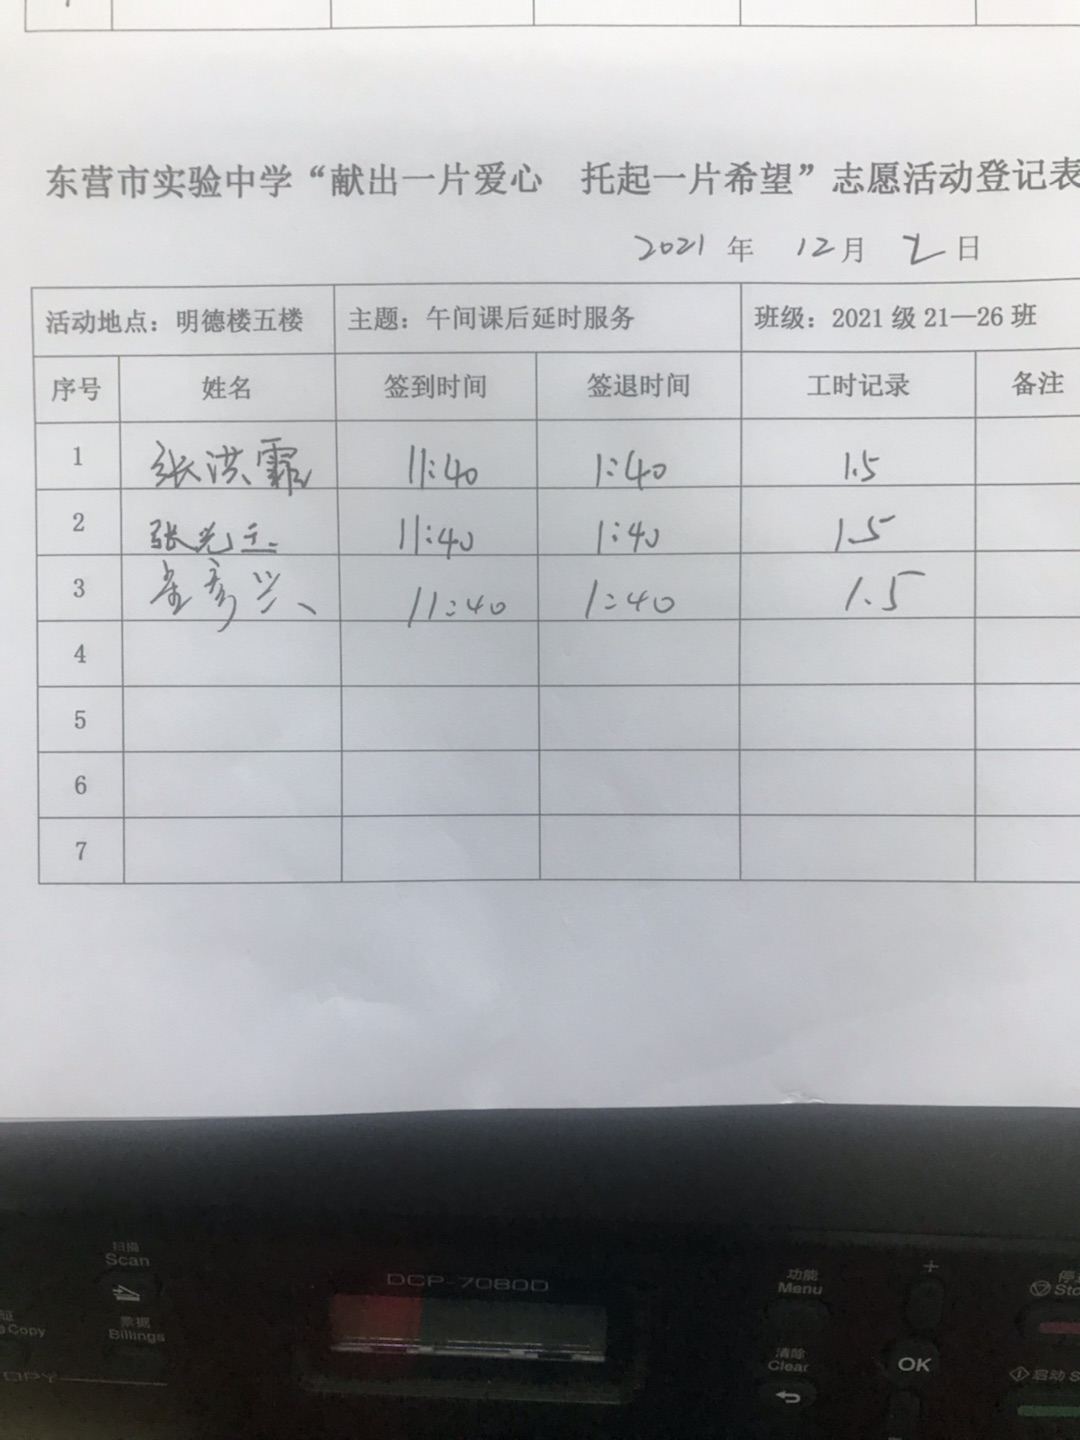 东营市实验中学“献出一片爱心 托起一片希望”志愿活动登记表
2021 年 12 月 2 日
活动地点：明德楼五楼 主题：午间课后延时服务 班级：2021 级 21—26 班
序号 姓名 签到时间 签退时间 工时记录 备注
1 张洪霏 11:40 1:40 1.5
2 张光玉 11:40 1:40 1.5
3 11:40 1:40 1.5
4
5
6
7
扫描
Scan
Copy
数据
Billings
DCP-7080D
功能
Menu
清除
Clear
+
OK
启动